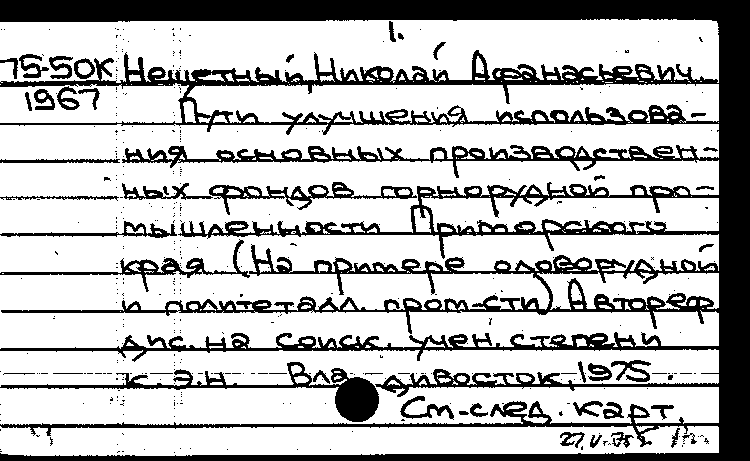 1.
75-50К Нешетный, Николай Афанасьевич.
1967 Пути улучшения использова-
ния основных производствен-
ных фондов горнорудной про-
мышленности Приморского
края (На примере оловорудной
и полиметалл. пром-сти). Автореф.
дис. на соиск. учен. степени
к. э. н. Владивосток, 1975.
См-след. карт.
27.V.75г.